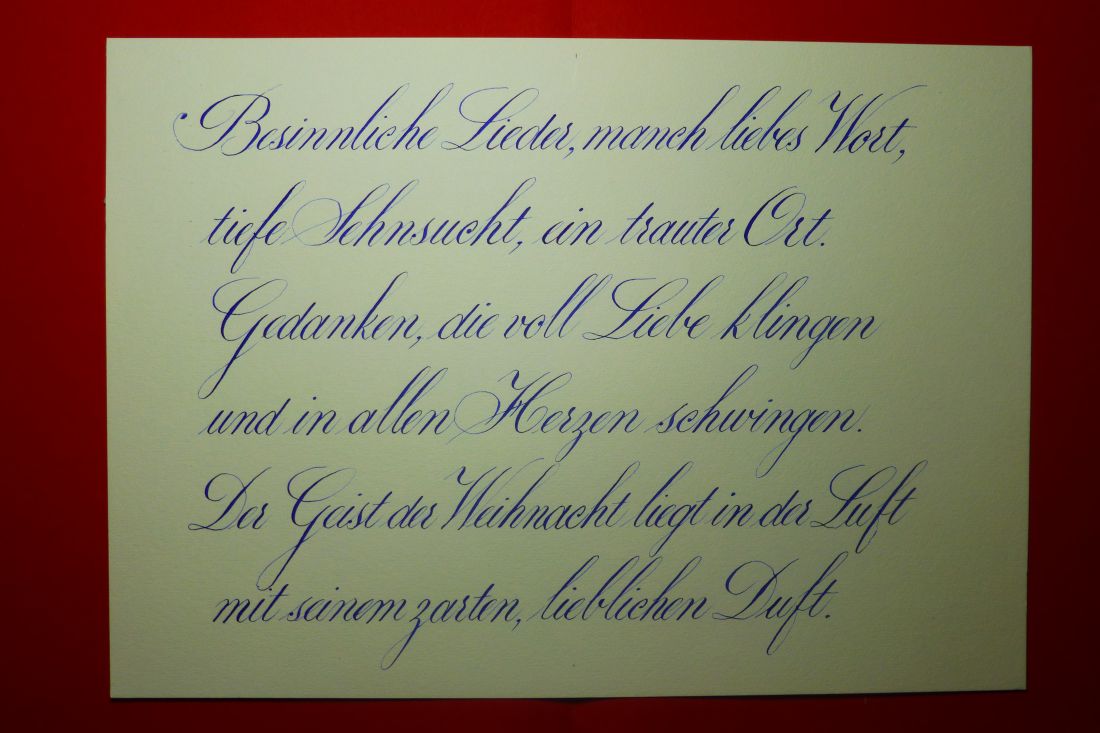 Besinnliche Lieder, manch liebes Wort,
tiefe Sehnsucht, ein trauter Ort.
Gedanken, die voll Liebe klingen
und in allen Herzen schwingen.
Der Geist der Weihnacht liegt in der Luft
mit seinem zarten, lieblichen Duft.